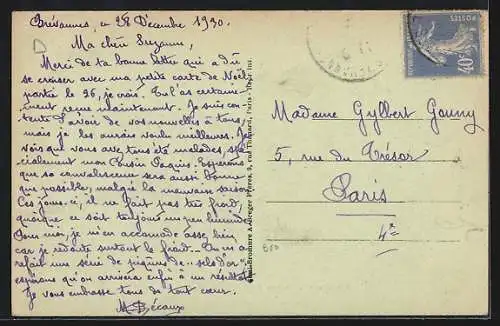 Brésannes, ce 28 Décembre 1930.
Ma chère Suzanne,
Merci de ta bonne lettre qui a dû
se croiser avec ma petite carte de Noël
partie le 26, je crois. Tu l'as certaine-
ment reçue maintenant. Je suis con-
tente d'avoir de vos nouvelles à tous,
mais je les aurais voulu meilleures. Je
vois que vous avez tous été malades, spé-
cialement mon Cousin Espérons
que sa convalescence sera aussi bonne
que possible, malgré la mauvaise saison.
Ces jours-ci, il ne fait pas très froid,
quoique ce soit toujours un peu humide.
Pour moi, je m'en accomode assez bien
car je redoute surtout le froid. On m'a
refait une série de piqûres de "sels d'or"
espérons qu'on arrivera enfin à un résultat.
Je vous embrasse tous de tout cœur.
M. Bécaux
Madame Gylbert Gouny
5, rue du Trésor
Paris
4e
POSTES
40c